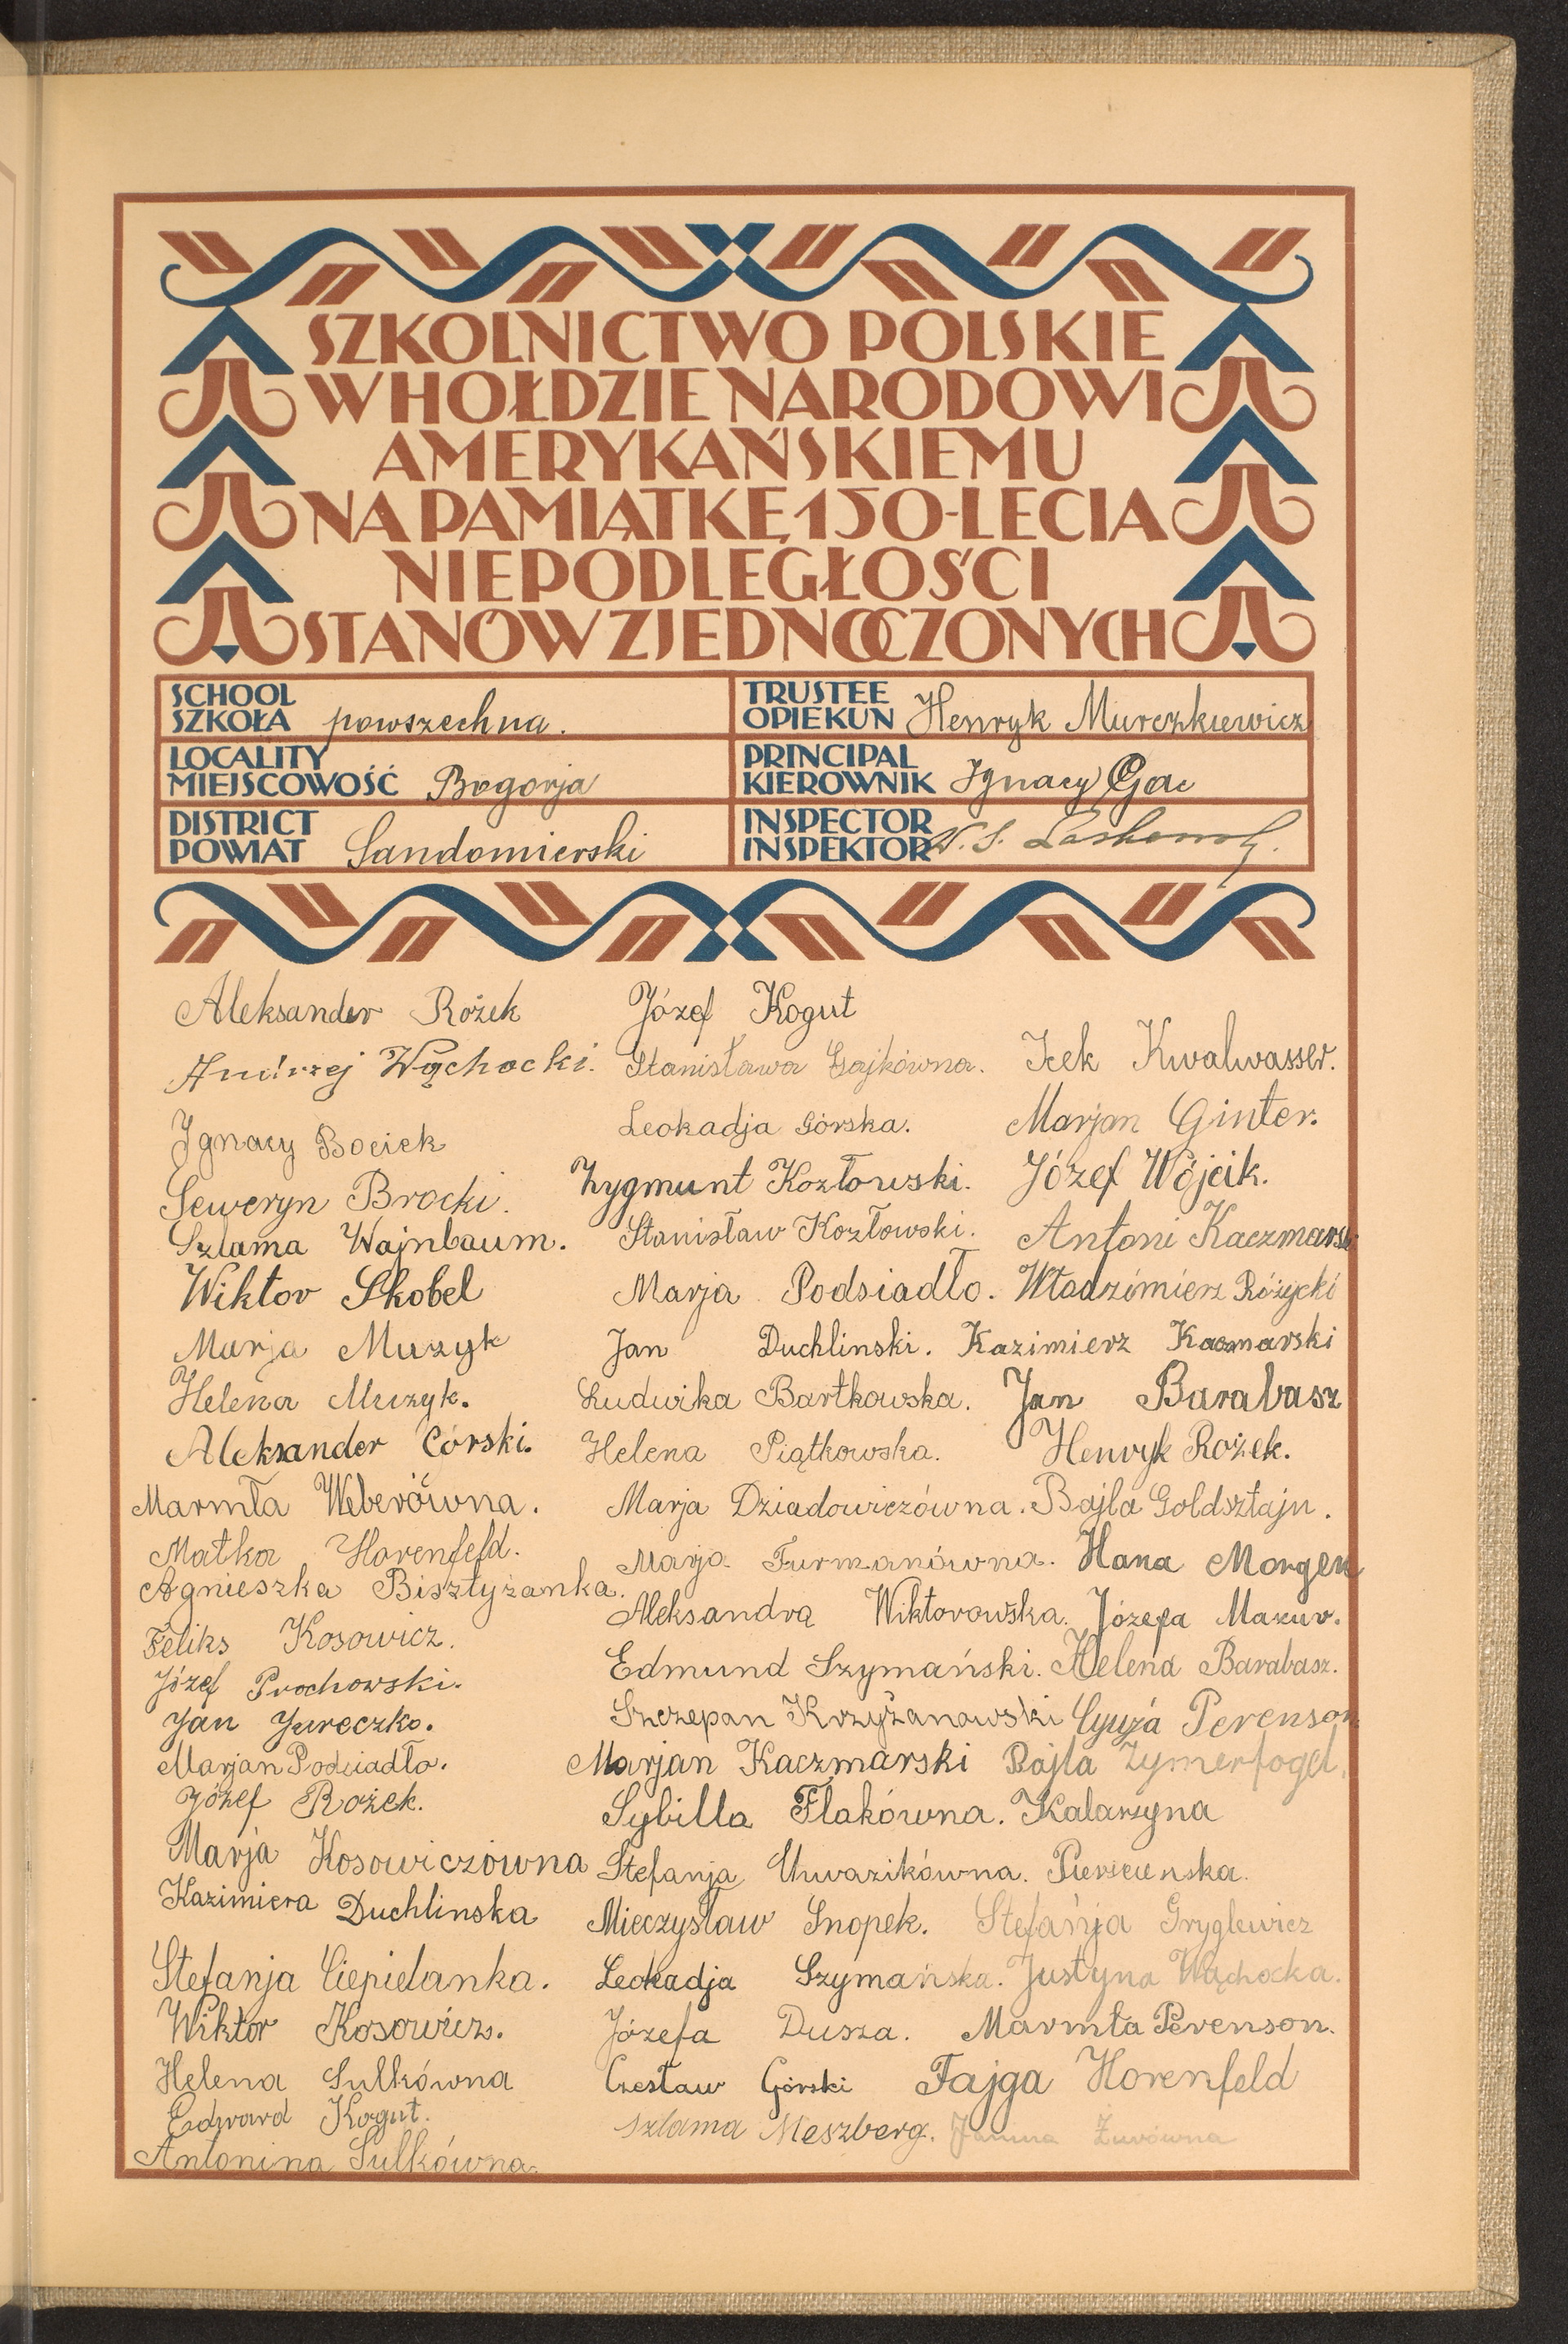 SZKOLNICTWO POLSKIE
W HOŁDZIE NARODOWI
AMERYKAŃSKIEMU
NA PAMIĄTKĘ 150-LECIA
NIEPODLEGŁOŚCI
STANÓW ZJEDNOCZONYCH
SCHOOL
SZKOŁA powszechna.
LOCALITY
MIEJSCOWOŚĆ Bogorja
DISTRICT
POWIAT Sandomierski
TRUSTEE
OPIEKUN Henryk Murczkiewicz
PRINCIPAL
KIEROWNIK Ignacy Gac
INSPECTOR
INSPEKTOR
Aleksander Rożek
Andrzej Wąchocki.
Ignacy Bociek
Seweryn Brocki.
Szlama Wajnbaum.
Wiktor Skobel
Marja Muzyk
Helena Muzyk.
Aleksander Górski.
Marmła Weberówna.
Matka Horenfeld.
Agnieszka Bisztyżanka.
Feliks Kosowicz.
Józef Prochowski.
Jan Jureczko.
Marjan Podsiadło.
Józef Rożek.
Marja Kosowiczówna
Kazimiera Duchlinska
Stefanja Ciepielanka.
Wiktor Kosowicz.
Helena Sulkówna
Edward Kogut.
Antonina Sulkówna.
Józef Kogut
Stanisława Gajkówna.
Leokadja Górska.
Zygmunt Kozłowski.
Stanisław Kozłowski.
Marja Podsiadło.
Jan Duchlinski.
Ludwika Bartkowska.
Helena Piątkowska.
Marja Dziadowiczówna.
Marja Furmanówna.
Aleksandra Wiktorowska.
Edmund Szymański.
Szczepan Krzyżanowski
Marjan Kaczmarski
Sybilla Flakówna.
Stefanja Uhwazikówna.
Mieczysław Snopek.
Leokadja Szymańska.
Józefa Dusza.
Czesław Górski
Szlama Meszberg.
Icek Kwalwasser.
Marjan Ginter.
Józef Wójcik.
Antoni Kaczmarski
Włodzimierz Różycki
Kazimierz Kaczmarski
Jan Barabasz
Henryk Rożek.
Bajla Goldsztajn.
Hana Morgen
Józefa Mazur.
Helena Barabasz.
Perenson
Bajla Zymerfogel.
Katarzyna
Stefanja Gryglewicz
Justyna Wąchocka.
Marmła Perenson.
Fajga Horenfeld
Janina Żurówna